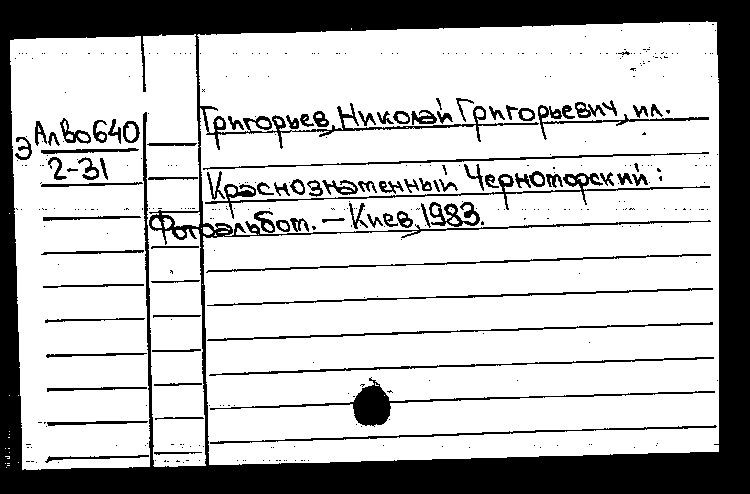 Григорьев, Николай Григорьевич, ил.
Э АлВо640
2-31
Краснознаменный Черноморский:
Фотоальбом. — Киев, 1983.